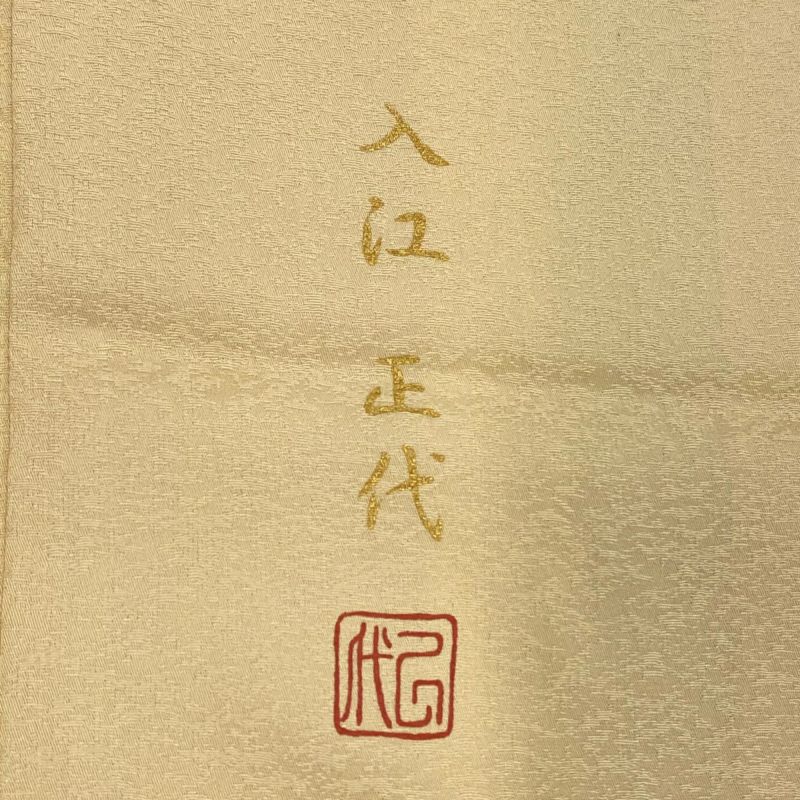 入江 正代